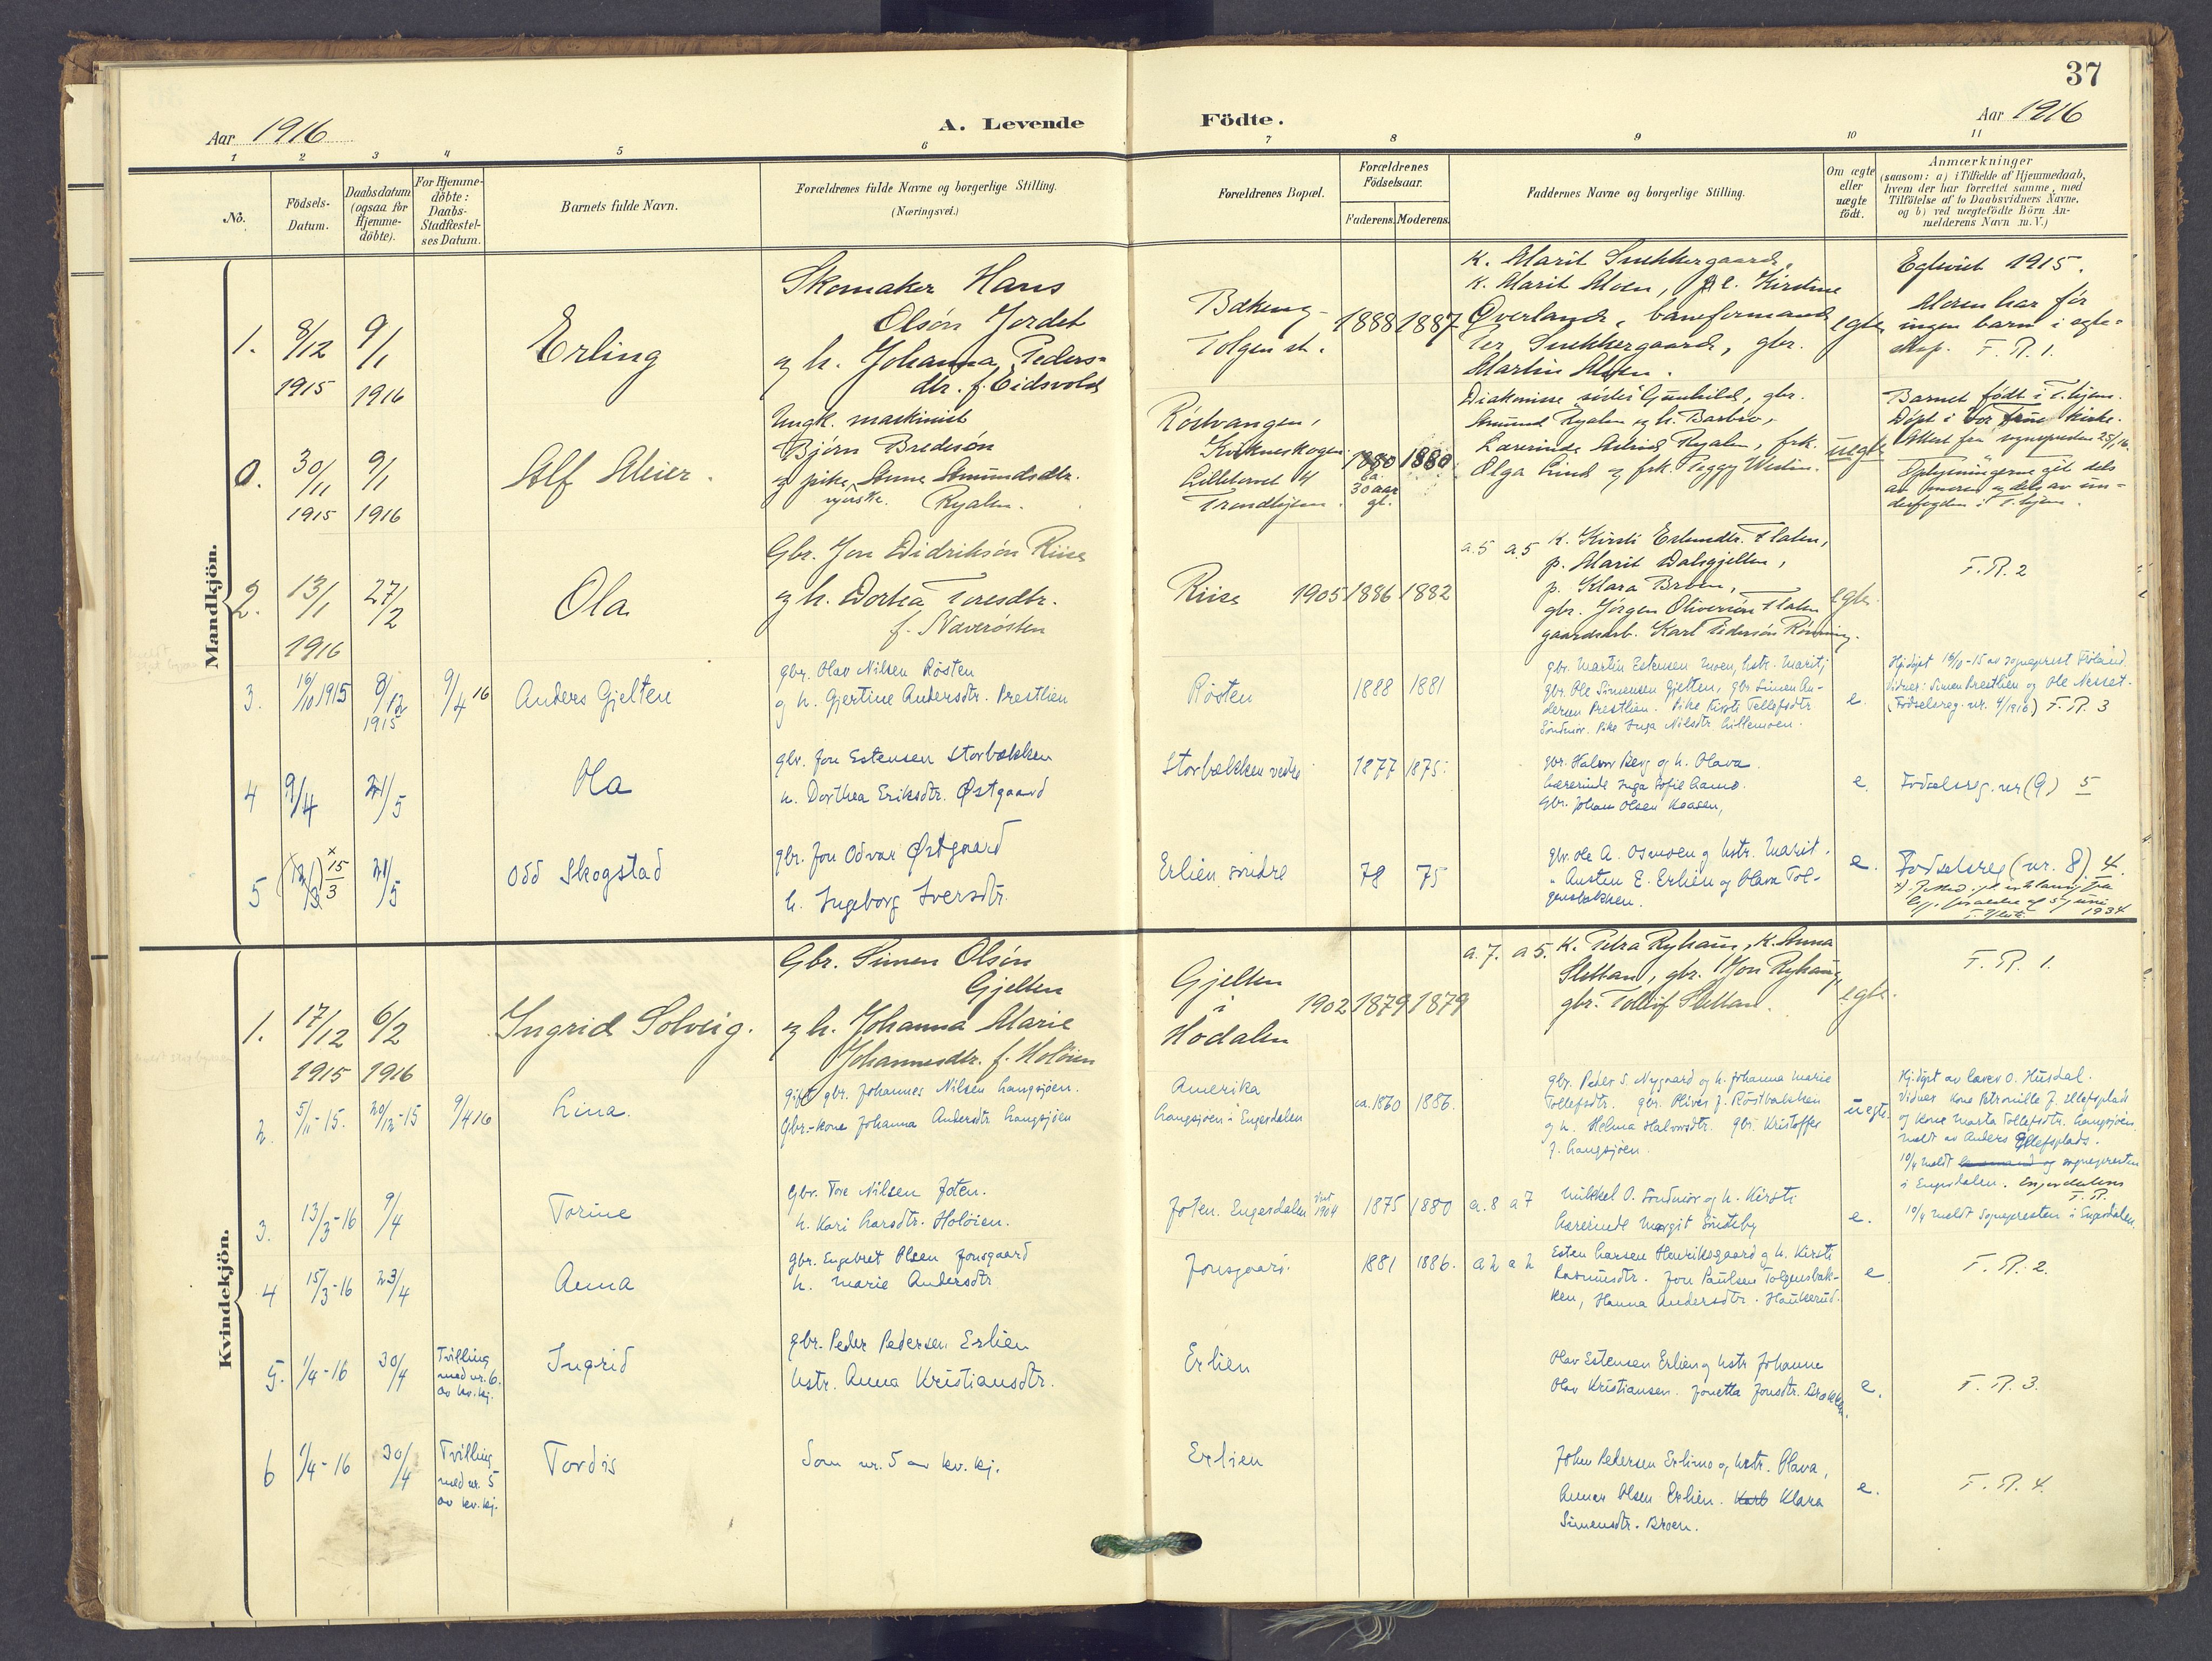 37
Aar 1916
A. Levende
Födte.
Aar 1916
1 2 3 4 5 6 7 8 9 10 11
No.
Födsels-
Datum.
Daabsdatum
(ogsaa for
Hjemme-
döbte).
For Hjemme-
döbte:
Daabs-
Stadfæstel-
ses Datum.
Barnets fulde Navn.
Forældrenes fulde Navne og borgerlige Stilling.
(Næringsvei.)
Forældrenes Bopæl.
Forældrenes
Födselsaar.
Faderens. Moderens.
Faddernes Navne og borgerlige Stilling.
Om ægte
eller
uægte
födt.
Anmærkninger
(saasom: a) i Tilfælde af Hjemmedaab,
hvem der har forrettet samme, med
Tilföielse af to Daabsvidners Navne,
og b) ved uægtefödte Börn An-
melderens Navn m.V.)
Mandkjön.
1.
8/12
1915
9/1
1916
Erling
Skomaker Hans
Olsön Jordet
og h. Johanna Peders-
dtr. f. Eidsvold
Bakeng
Tolgen st.
1888 1887
K. Marit Snekkergaard,
K. Marit Moen, p. Kirstine
Øverland, baneformand
Per Snekkergaard, gbr.
Martin Moen.
egte
Egteviet 1915.
Moren har før
ingen barn i egte-
skap. F. R. 1.
0.
30/11
1915
9/1
1916
Alf Meier.
Ungk. maskinist
Björn Bredesön
og pike Anna Amundsdtr.
syerske. Ryalen.
Röstvangen,
Kvikneskogen
Lilletorvet 4
Trondhjem.
1880 1880
ca.
30 aar
gl.
Diakonisse söster Gunhild, gbr.
Amund Ryalen og h. Barbro,
Lærerinde Astrid Ryalen, frk.
Olga Lind og frk. Peggy Westin.
uegte
Barnet födt i T.hjem.
Döpt i Vor Frue kirke.
Attest fra sognepresten 25/1 16.
Oplysningerne git dels
av moren og dels av un-
derfogden i T.hjem.
2.
13/1
1916
27/2
Ola
Gbr. Jon Didriksön Riise
og h. Dortea Toresdtr.
f. Næverösten
Riise
1905 1886 1882
a.5 a.5
K. Kirsti Erlandtr. Flaten,
p. Marit Dalsgjelten,
p. Klara Broen,
gbr. Jörgen Oliversön Flaten
gaardsarb. Karl Pedersön Rönning.
egte.
F. R. 2
3.
16/10 1915
8/12
1915
9/4 16
Anders Gjelten
gbr. Olav Nilsen Røsten
og h. Gjertine Andersdtr. Prestlien
Røsten
1888 1881
gbr. Martin Estensen Moen, hstr. Marit;
gbr. Ole Simensen Gjelten, gbr. Simen An-
dersen Prestlien. Pike Kirsti Tollefsdtr
Søndmør. Pike Inga Nilsdtr. Lillemoen.
e.
Hj.døpt 16/10-15 av sogneprest Fløtand
Vidner: Simen Prestlien og Ole Nesset.
(Fødselsreg. nr. 4/1916) F. R. 3
4
9/4
21/5
Ola
gbr. Jon Estensen Storbækken
h. Dorthea Eriksdtr. Østgaard
Storbækken vestre
1877 1875.
gbr. Halvor Berg og h. Olava.
Lærerinde Inga Sofie Aamo.
Gbr. Johan Olsen Kaasen,
e.
Fødselsreg. nr (9) 5
5
(12/3) x 15/3
21/5
Odd Skogstad
gbr. Jon Odvar Østgaard
h. Ingeborg Iversdtr.
Erlien søndre
78 75
gbr. Ole A. Osmoen og hstr. Marit.
" Austen E. Erlien og Olava Tol-
gensbakken.
e.
Fødselsreg (nr. 8) 4.
1934
Kvindekjön.
1.
17/12
1915
6/2
1916
Ingrid Solveig.
Gbr. Simen Olsön
Gjelten
og h. Johanna Marie
Johannesdtr. f. Holöien
Gjelten
i
Hodalen
1902 1879 1879
a.7. a5.
K. Petra Ryhaug, K. Anna
Slettan, gbr. Jon Ryhaug,
gbr. Tollef Slettan.
egte.
F. R. 1.
2.
5/11-15.
20/12-15
9/4 16
Lina.
gift gbr. Johannes Nilsen Langsjøen.
Gbr.-kone Johanna Andersdtr Langsjøen
Amerika
Langsjøen i Engerdalen
ca. 1860 1886.
gbr. Peder S. Nygaard og h. Johanna Marie
Tollefsdtr. gbr. Oliver J. Røstbakken
og h. Helma Halvorsdtr. gbr. Kristoffer
J. Langsjøen.
uegte.
Hj.døpt av lærer O. Husdal.
Vidner kone Petronille J. Ellefsplads
og kone Marta Tollefsdtr. Langsjøen.
meldt av Anders Ellefsplads.
10/4 meldt sognepresten
i Engerdalen. Engerdalens
F. R.
3.
13/3-16
9/4
Torine
Gbr. Tore Nilsen Joten.
h. Kari Larsdtr. Holøien.
Joten. Engerdalen
viet
1904
1875 1880
a.8 a 7
Mikkel O. Sondmör og h. Kirsti
Lærerinde Margit Sundeby
e.
10/4 meldt Sognepresten i Engerdalen.
4
15/3-16
23/4
Anna
gbr. Engebret Olsen Jonsgaard
h. Marie Andersdtr
Jonsgaard.
1881 1886.
a 2 a 2
Esten Larsen Henriksgaard og h. Kirsti
Rasmusdtr. Jon Paulsen Tolgensbak-
ken, Hanna Andersdtr. Haukerud.
e.
F. R. 2.
5.
1/4-16
30/4
Tvilling
med nr. 6.
av kv. kj.
Ingrid
gbr. Peder Pedersen Erlien
hstr. Anna Kristiansdtr.
Erlien
Olav Estensen Erlien og hstr Johanne
Olav Kristiansen. Jonetta Jonsdtr. Brækken.
e.
F. R. 3.
6
1/4-16
30/4
Tvilling
med nr. 5
av kv. kj.
Tordis
Som nr. 5 av kv. kj.
Erlien
Johan Pedersen Erlimo og hstr. Olava,
Anner Olsen Erlien. Klara
Simensdtr. Broen.
e.
F. R. 4.